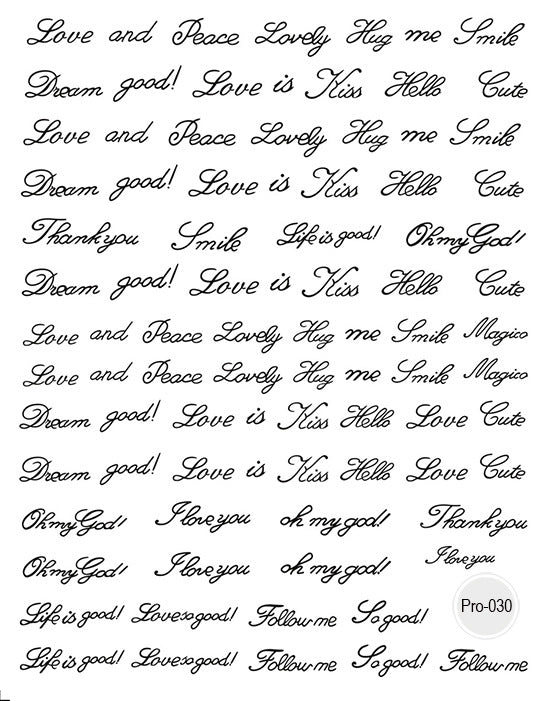 Love and Peace Lovely Hug me Smile
Dream good! Love is Kiss Hello Cute
Love and Peace Lovely Hug me Smile
Dream good! Love is Kiss Hello Cute
Thankyou Smile Life is good! OhmyGod!
Dream good! Love is Kiss Hello Cute
Love and Peace Lovely Hug me Smile Magico
Love and Peace Lovely Hug me Smile Magico
Dream good! Love is Kiss Hello Love Cute
Dream good! Love is Kiss Hello Love Cute
OhmyGod! I love you oh my god! Thankyou
OhmyGod! I love you oh my god! I love you
Pro-030
Life is good! Lovesogood! Followme So good!
Life is good! Lovesogood! Followme So good! Followme